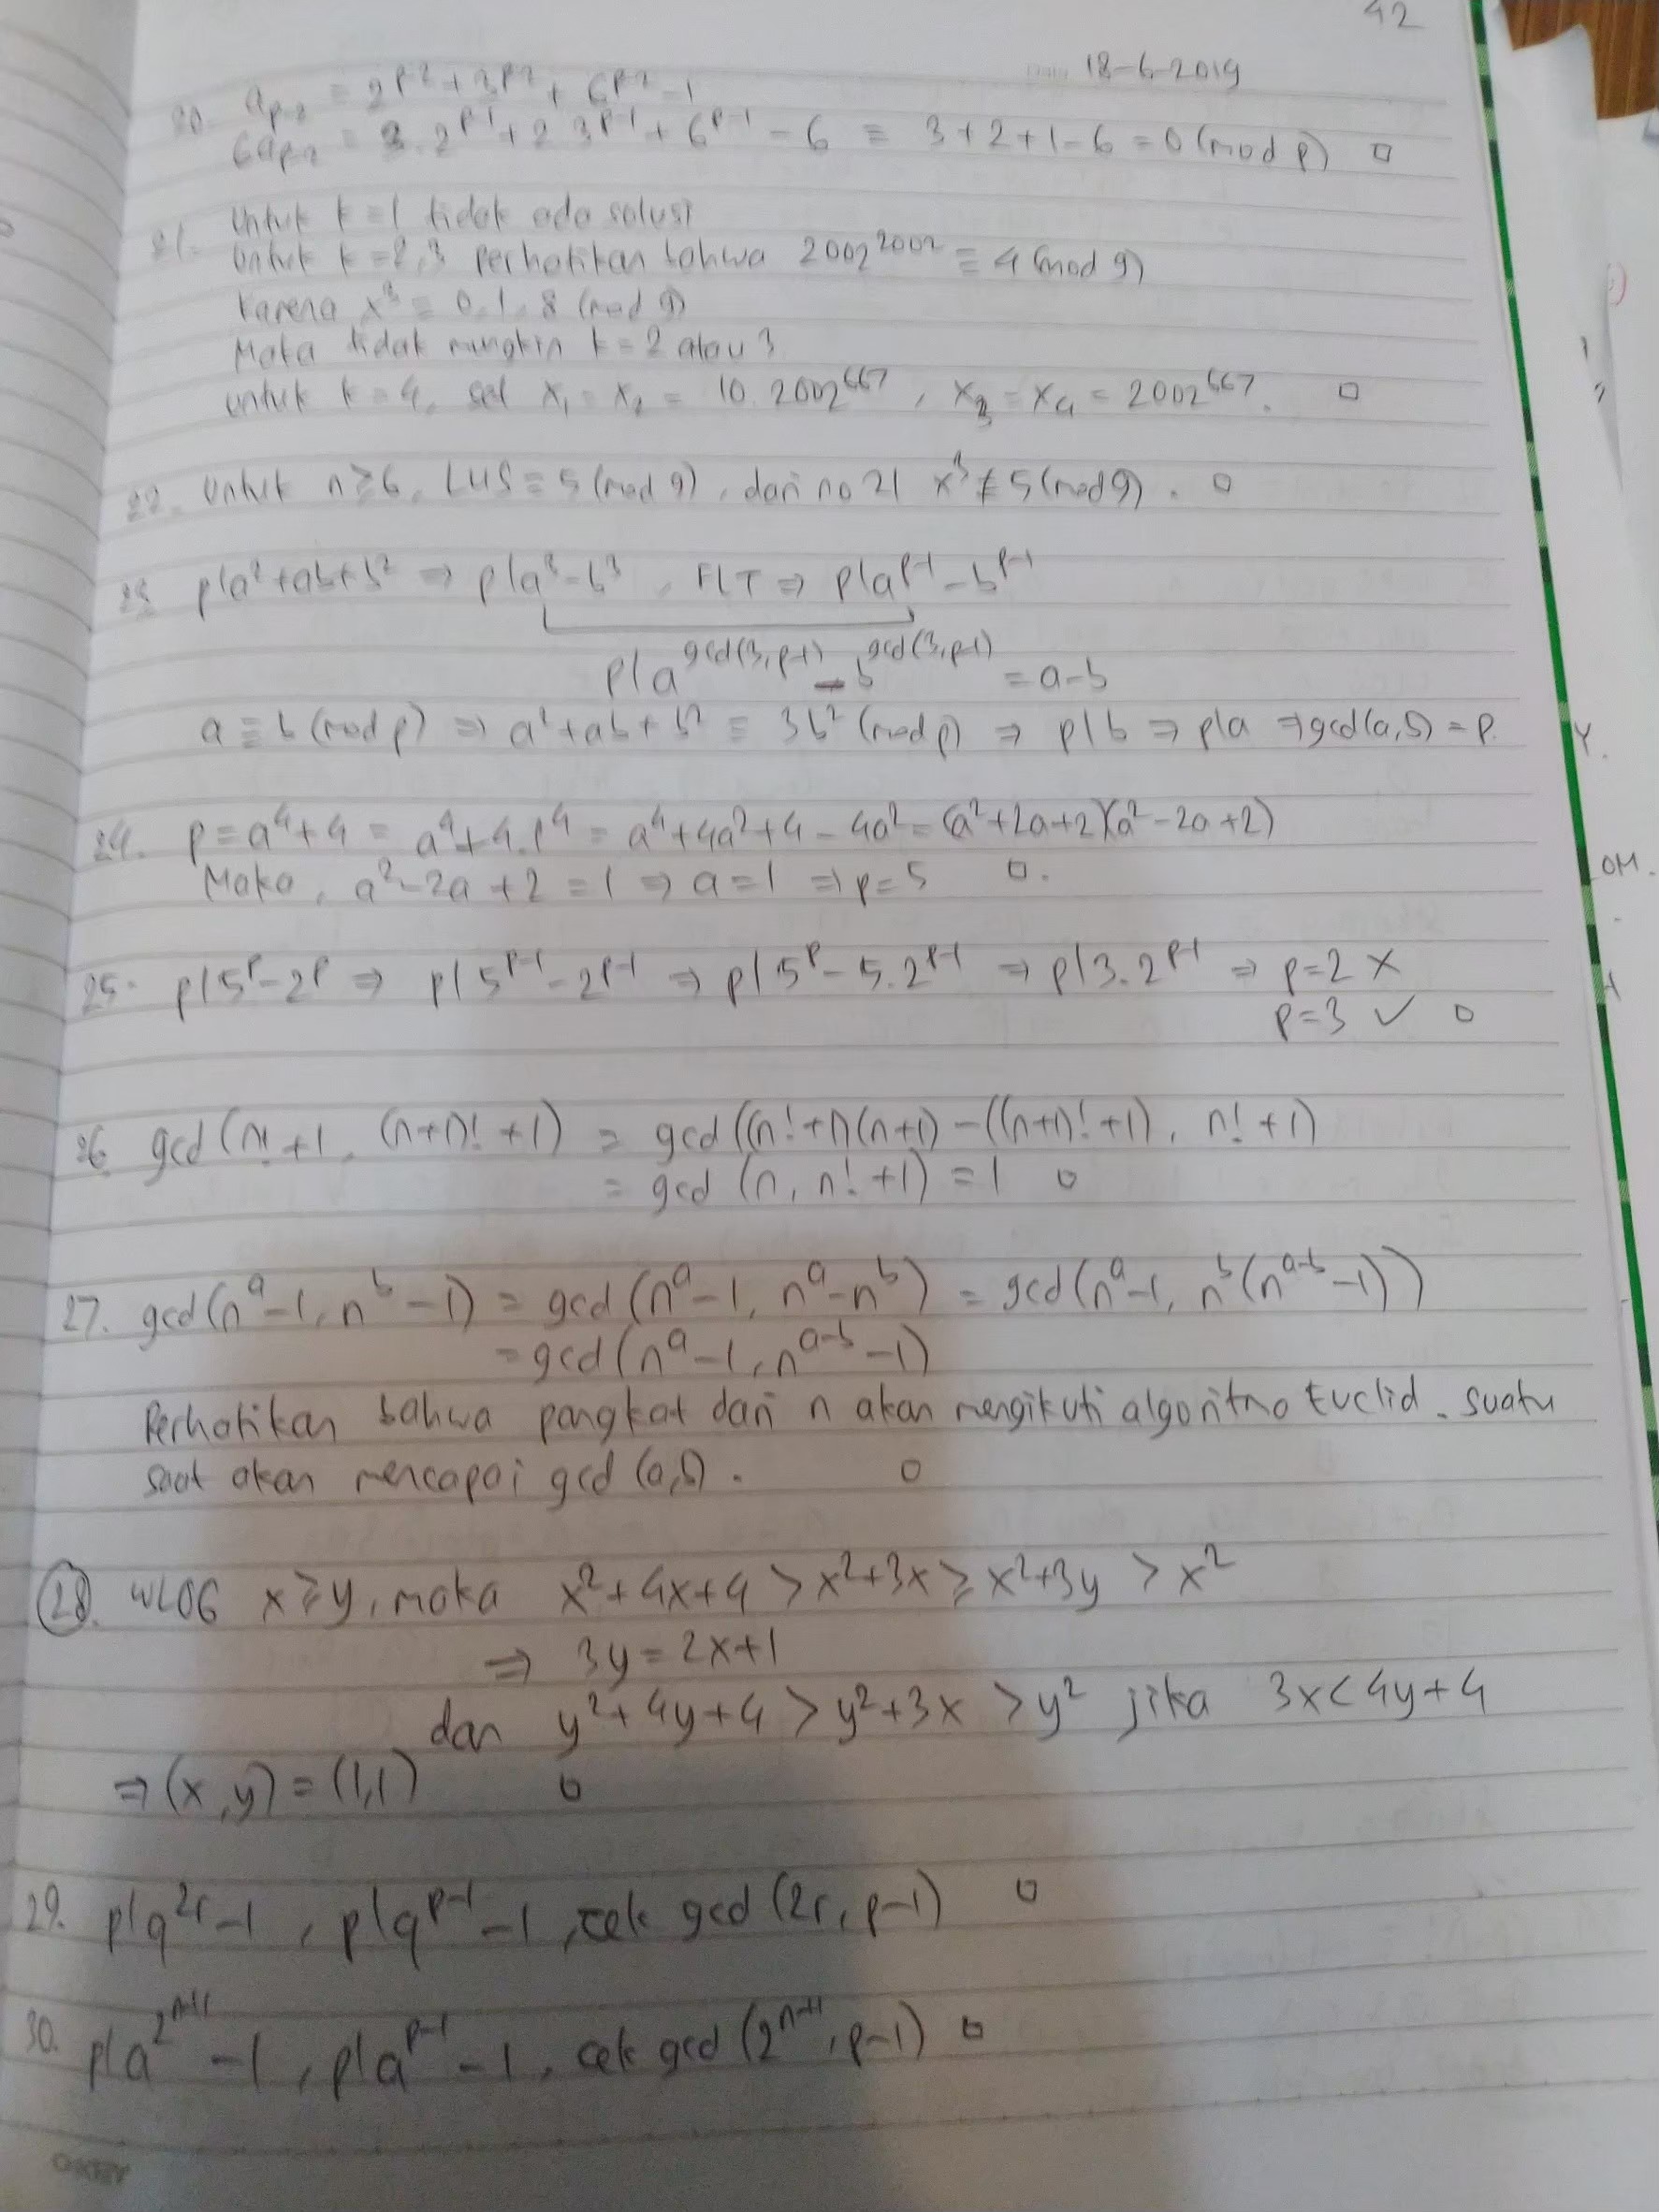 42
18-6-2019
20. a_{p-2} = 2^{p-2} + 3^{p-2} + 6^{p-2} - 1
6a_{p-2} = 3.2^{p-1} + 2 3^{p-1} + 6^{p-1} - 6 ≡ 3+2+1-6 = 0 (mod p) □
21. Untuk k=1 tidak ada solusi
Untuk k=2,3 perhatikan bahwa 2002^{2002} ≡ 4 (mod 9)
Karena x^3 ≡ 0,1,8 (mod 9)
Maka tidak mungkin k=2 atau 3
untuk k=4, set x_1 = x_2 = 10.2002^{667}, x_3 = x_4 = 2002^{667}. □
22. Untuk n≥6, LHS ≡ 5 (mod 9), dari no 21 x^3 ≢ 5 (mod 9). □
23. p|a^2+ab+b^2 ⇒ p|a^3-b^3, FLT ⇒ p|a^{p-1}-b^{p-1}
p|a^{gcd(3,p-1)} - b^{gcd(3,p-1)} = a-b
a≡b (mod p) ⇒ a^2+ab+b^2 ≡ 3b^2 (mod p) ⇒ p|b ⇒ p|a ⇒ gcd(a,b) = p.
24. p = a^4+4 = a^4+4.1^4 = a^4+4a^2+4-4a^2 = (a^2+2a+2)(a^2-2a+2)
Maka, a^2-2a+2 = 1 ⇒ a=1 ⇒ p=5 □.
25. p|5^p-2^p ⇒ p|5^{p-1}-2^{p-1} ⇒ p|5^p-5.2^{p-1} ⇒ p|3.2^{p-1} ⇒ p=2 ×
p=3 ✓ □
26. gcd(n!+1, (n+1)!+1) = gcd((n!+1)(n+1)-((n+1)!+1), n!+1)
= gcd(n, n!+1) = 1 □
27. gcd(n^a-1, n^b-1) = gcd(n^a-1, n^a-n^b) = gcd(n^a-1, n^b(n^{a-b}-1))
= gcd(n^a-1, n^{a-b}-1)
Perhatikan bahwa pangkat dari n akan mengikuti algoritma Euclid. suatu
saat akan mencapai gcd(a,b). □
28. WLOG x≥y, maka x^2+4x+4 > x^2+3x ≥ x^2+3y > x^2
⇒ 3y = 2x+1
dan y^2+4y+4 > y^2+3x > y^2 jika 3x < 4y+4
⇒ (x,y) = (1,1) □
29. p|q^{2r}-1, p|q^{p-1}-1, cek gcd(2r, p-1) □
30. p|a^{2^{n+1}}-1, p|a^{p-1}-1, cek gcd(2^{n+1}, p-1) □
Y.
OM.